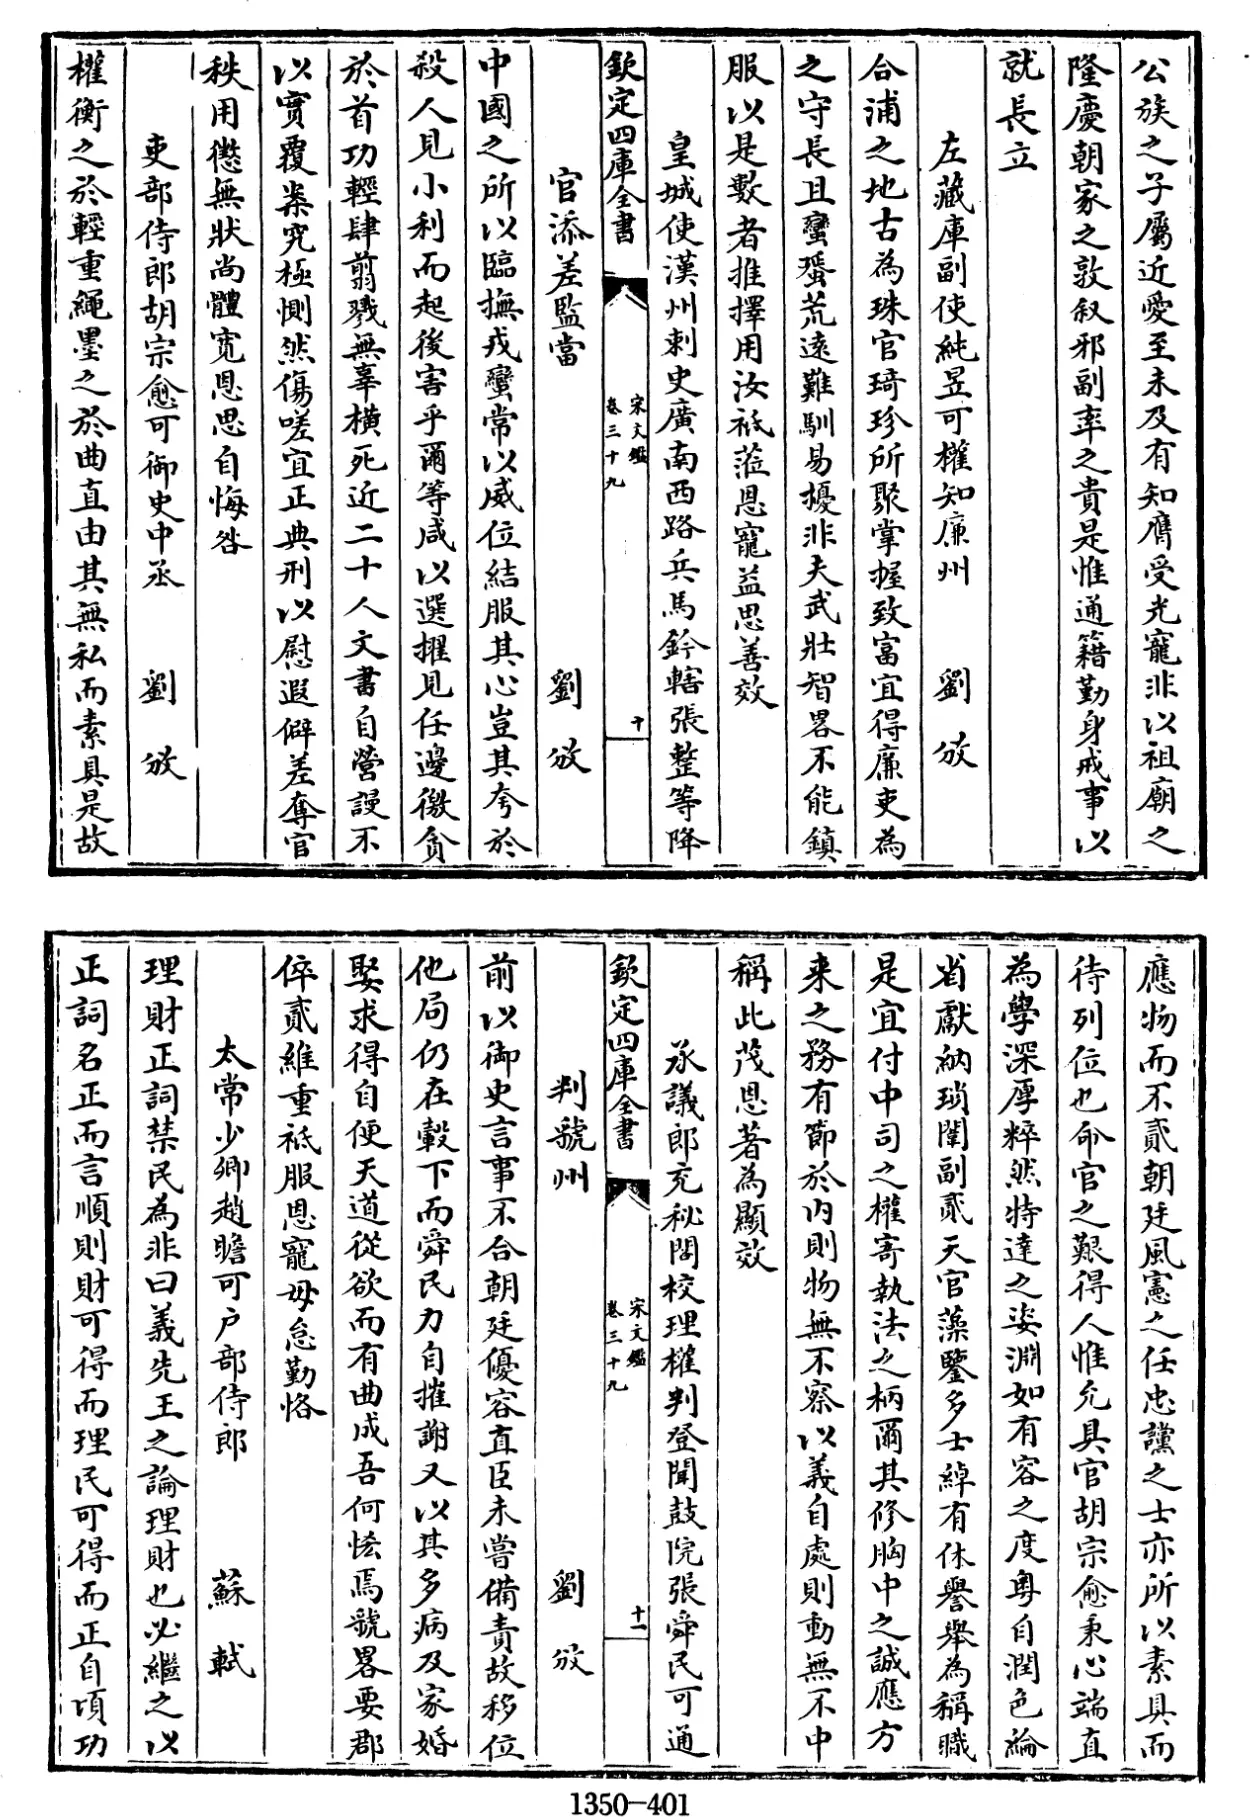 公族之子屬近愛至未及有知膺受光寵非以祖廟之
隆慶朝家之敦叙邪副率之貴是惟通籍勤身戒事以
就長立
左藏庫副使純昱可權知廉州 劉攽
合浦之地古為珠官琦珍所聚掌握致富宜得廉吏為
之守長且蠻蜑荒遠難馴易擾非夫武壯智畧不能鎮
服以是數者推擇用汝祗蒞恩寵益思善效
皇城使漢州刺史廣南西路兵馬鈐轄張整等降
欽定四庫全書 宋文鑑 卷三十九 十
官添差監當 劉攽
中國之所以臨撫戎蠻常以威位結服其心豈其夸於
殺人見小利而起後害乎爾等咸以選擢見任邊徼貪
於首功輕肆翦戮無辜橫死近二十人文書自營謾不
以實覆案究極惻然傷嗟宜正典刑以慰遐僻差奪官
秩用懲無狀尚體寬恩思自悔咎
吏部侍郎胡宗愈可御史中丞 劉攽
權衡之於輕重繩墨之於曲直由其無私而素具是故
應物而不貳朝廷風憲之任忠讜之士亦所以素具而
待列位也命官之艱得人惟允具官胡宗愈秉心端直
為學深厚粹然特達之姿淵如有容之度粵自潤色論
省獻納瑣闈副貳天官藻鑒多士綽有休譽舉為稱職
是宜付中司之權寄執法之柄爾其修胸中之誠應方
来之務有節於内則物無不察以義自處則動無不中
稱此茂恩著為顯效
承議郎充秘閣校理權判登聞鼓院張舜民可通
欽定四庫全書 宋文鑑 卷三十九 十一
判虢州 劉攽
前以御史言事不合朝廷優容直臣未嘗備責故移位
他局仍在轂下而舜民力自摧謝又以其多病及家婚
娶求得自便天道從欲而有曲成吾何恡焉虢畧要郡
倅貳維重祗服恩寵毋怠勤恪
太常少卿趙瞻可户部侍郎 蘇軾
理財正詞禁民為非曰義先王之論理財也必繼之以
正詞名正而言順則財可得而理民可得而正自頃功
1350-401